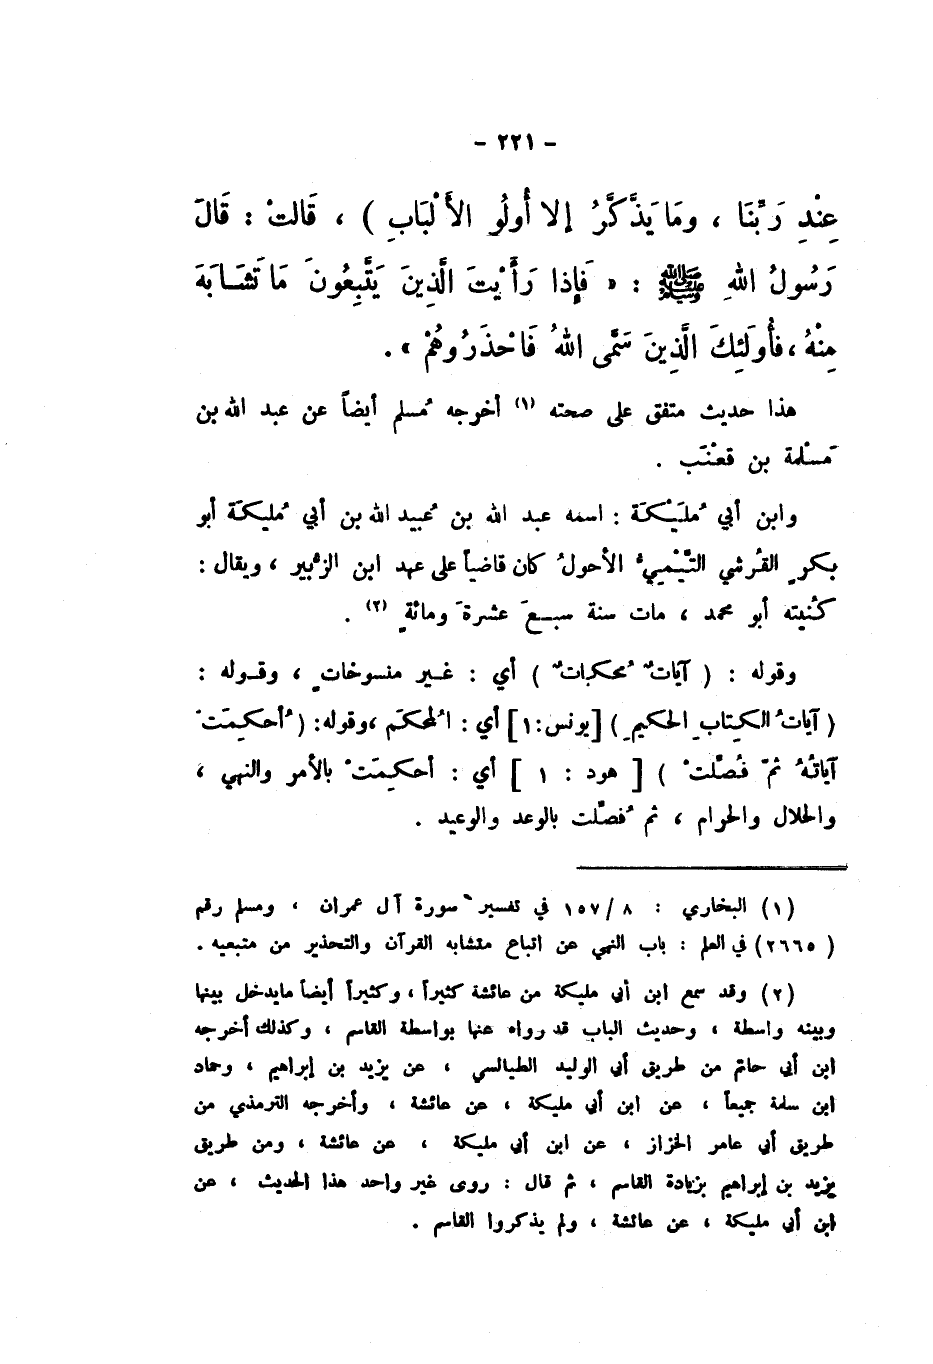 - ٢٢١ -
عِنْدِ رَبِّنَا ، ومَا يَذَّكَّرُ إلا أُولُو الأَلْبَابِ ) ، قَالتْ : قَالَ
رَسُولُ اللهِ ﷺ : « فَإذا رَأَيْتَ الَّذِينَ يَتَّبِعُونَ مَا تَشَابَهَ
مِنْهُ ، فأُولَئِكَ الَّذِينَ سَمَّى اللهُ فَاحْذَرُوهُمْ » .
هذا حديث متفق على صحته (١) أخرجه مُسلم أيضاً عن عبد الله بن
مَسْلمة بن قعْنَب .
وابن أبي مُلَيْكَة : اسمه عبد الله بن عُبيد الله بن أبي مُليكَة أبو
بكرٍ القُرشي التَّيْميُّ الأحولُ كان قاضياً على عهد ابن الزُّبير ، ويقال :
كُنيته أبو محمد ، مات سنة سبعَ عشرةَ ومائةٍ (٢) .
وقوله : ( آياتٌ مُحكماتٌ ) أي : غير منسوخاتٍ ، وقوله :
( آياتُ الكِتابِ الحكيمِ ) [يونس:١] أي : المُحكَم ،وقوله: ( أُحكِمَتْ
آياتُهُ ثمّ فُصّلتْ ) [ هود : ١ ] أي : أحكِمَتْ بالأمر والنهي ،
والحلال والحرام ، ثم فُصّلت بالوعد والوعيد .
(١) البخاري : ٨ / ١٥٧ في تفسير سورة آل عمران ، ومسلم رقم
( ٢٦٦٥) في العلم : باب النهي عن اتباع متشابه القرآن والتحذير من متبعيه .
(٢) وقد سمع ابن أبي مليكة من عائشة كثيراً ، وكثيراً أيضاً مايدخل بينها
وبينه واسطة ، وحديث الباب قد رواه عنها بواسطة القاسم ، وكذلك أخرجه
ابن أبي حاتم من طريق أبي الوليد الطيالسي ، عن يزيد بن إبراهيم ، وحماد
ابن سلمة جميعاً ، عن ابن أبي مليكة ، عن عائشة ، وأخرجه الترمذي من
طريق أبي عامر الخزاز ، عن ابن أبي مليكة ، عن عائشة ، ومن طريق
يزيد بن إبراهيم بزيادة القاسم ، ثم قال : روى غير واحد هذا الحديث ، عن
ابن أبي مليكة ، عن عائشة ، ولم يذكروا القاسم .